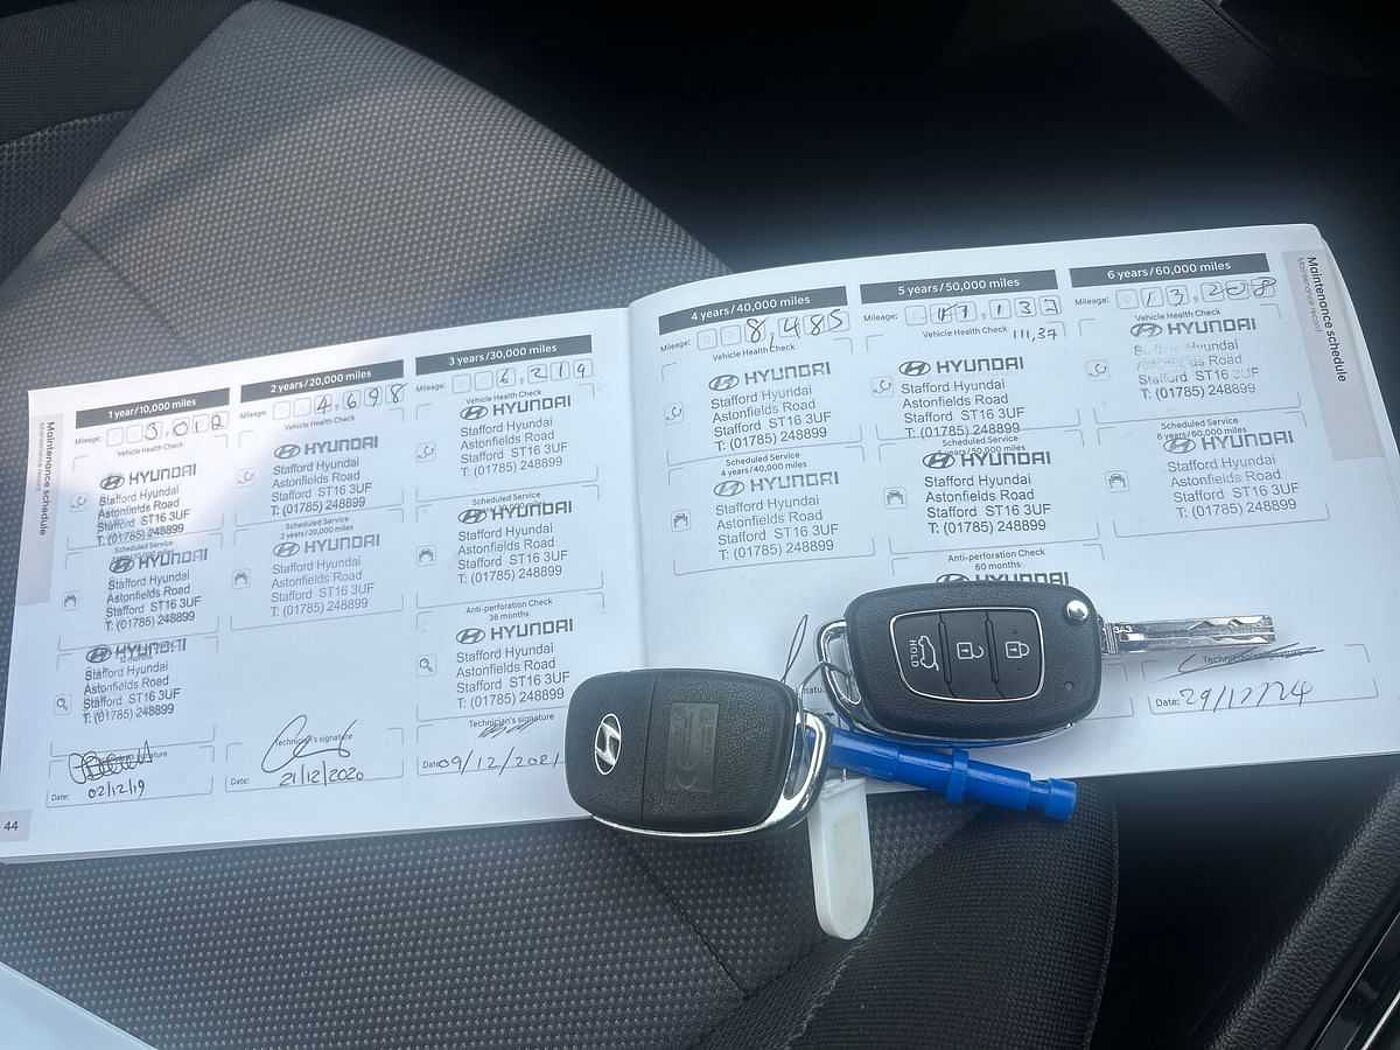 Maintenance schedule
Maintenance record
1 year/10,000 miles
Mileage: 3,012
Vehicle Health Check
HYUNDAI
Stafford Hyundai
Astonfields Road
Stafford ST16 3UF
T: (01785) 248899
Scheduled Service
HYUNDAI
Stafford Hyundai
Astonfields Road
Stafford ST16 3UF
T: (01785) 248899
HYUNDAI
Stafford Hyundai
Astonfields Road
Stafford ST16 3UF
T: (01785) 248899
Date: 02/12/19
44
2 years/20,000 miles
Mileage: 4,698
Vehicle Health Check
HYUNDAI
Stafford Hyundai
Astonfields Road
Stafford ST16 3UF
T: (01785) 248899
Scheduled Service
2 years/20,000 miles
HYUNDAI
Stafford Hyundai
Astonfields Road
Stafford ST16 3UF
T: (01785) 248899
Technician's signature
Date: 21/12/2020
3 years/30,000 miles
Mileage: 6,219
Vehicle Health Check
HYUNDAI
Stafford Hyundai
Astonfields Road
Stafford ST16 3UF
T: (01785) 248899
Scheduled Service
HYUNDAI
Stafford Hyundai
Astonfields Road
Stafford ST16 3UF
T: (01785) 248899
Anti-perforation Check
36 months
HYUNDAI
Stafford Hyundai
Astonfields Road
Stafford ST16 3UF
T: (01785) 248899
Technician's signature
Date 09/12/2021
4 years/40,000 miles
Mileage: 8,485
Vehicle Health Check
HYUNDAI
Stafford Hyundai
Astonfields Road
Stafford ST16 3UF
T: (01785) 248899
Scheduled Service
4 years/40,000 miles
HYUNDAI
Stafford Hyundai
Astonfields Road
Stafford ST16 3UF
T: (01785) 248899
5 years/50,000 miles
Mileage: 11,137
Vehicle Health Check 111,37
HYUNDAI
Stafford Hyundai
Astonfields Road
Stafford ST16 3UF
T: (01785) 248899
Scheduled Service
5 years/50,000 miles
HYUNDAI
Stafford Hyundai
Astonfields Road
Stafford ST16 3UF
T: (01785) 248899
Anti-perforation Check
60 months
HYUNDAI
6 years/60,000 miles
Mileage: 13,208
Vehicle Health Check
HYUNDAI
Hyundai
Stafford ST16 3UF
T: (01785) 248899
Scheduled Service
6 years/60,000 miles
HYUNDAI
Stafford Hyundai
Astonfields Road
Stafford ST16 3UF
T: (01785) 248899
Date: 29/12/24
Maintenance schedule
Maintenance record
HOLD